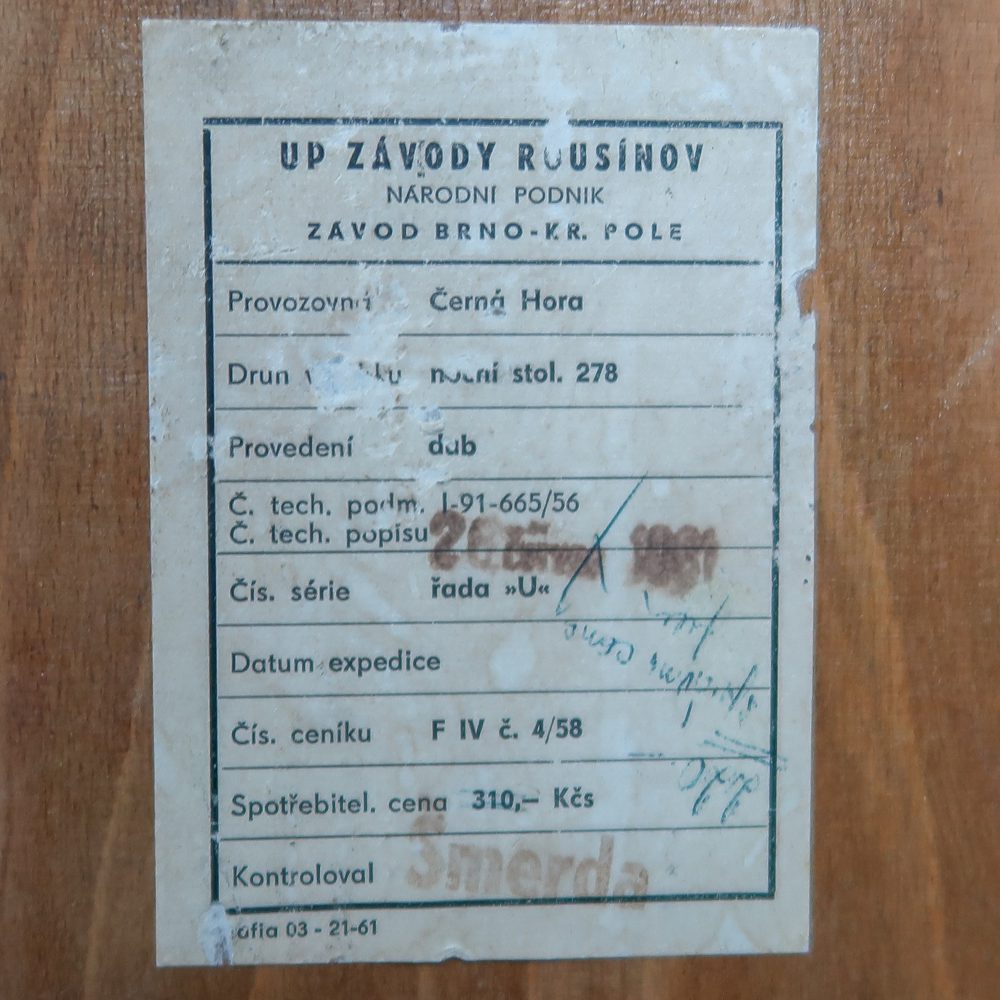 UP ZÁVODY ROUSÍNOV
NÁRODNÍ PODNIK
ZÁVOD BRNO-KR. POLE
Provozovna Černá Hora
Druh výrobku noční stol. 278
Provedení dub
Č. tech. podm. J-91-665/56
Č. tech. popisu
Čís. série řada »U«
Datum expedice
Čís. ceníku F IV č. 4/58
Spotřebitel. cena 310,— Kčs
Kontroloval Šmerda
03 - 21-61